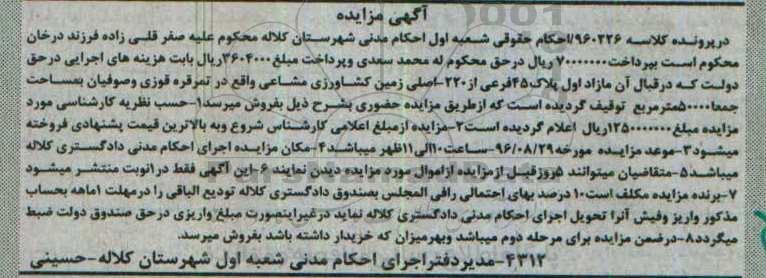 آگهی مزایده
در پرونده کلاسه ۹۶۰۲۲۶/احکام حقوقی شعبه اول احکام مدنی شهرستان کلاله محکوم علیه صفر قلی زاده فرزند درخان
محکوم است بپرداخت ۷۰۰۰۰۰۰۰ ریال درحق محکوم له محمد سعدی وپرداخت مبلغ ۳۶۰۴۰۰۰ریال بابت هزینه های اجرایی درحق
دولت که درقبال آن مازاد اول پلاک۴۵فرعی از۲۲۰-اصلی زمین کشاورزی مشاعی واقع در تمرقره قوزی وصوفیان بمساحت
جمعا۵۰۰۰۰مترمربع توقیف گردیده است که ازطریق مزایده حضوری بشرح ذیل بفروش میرسد۱-حسب نظریه کارشناسی مورد
مزایده مبلغ ۱۲۵۰۰۰۰۰۰۰ریال اعلام گردیده است۲-مزایده ازمبلغ اعلامی کارشناس شروع وبه بالاترین قیمت پشنهادی فروخته
میشود۳-موعد مزایده مورخه ۹۶/۰۸/۲۹-ساعت۱۰الی۱۱ظهر میباشد۴-مکان مزایده اجرای احکام مدنی دادگستری کلاله
میباشد۵-متقاضیان میتوانند ۵روزقبل ازمزایده ازاموال مورد مزایده دیدن نمایند۶-این آگهی فقط در۱نوبت منتشر میشود
۷-برنده مزایده مکلف است۱۰درصد بهای احتمالی رافی المجلس بصندوق دادگستری کلاله تودیع الباقی را درمهلت ۱ماهه بحساب
مذکور واریز وفیش آنرا تحویل اجرای احکام مدنی دادگستری کلاله نماید درغیراینصورت مبلغ واریزی درحق صندوق دولت ضبط
میگردد۸-درضمن مزایده برای مرحله دوم میباشد وبهرمیزان که خریدار داشته باشد بفروش میرسد.
۴۳۱۲-مدیردفتراجرای احکام مدنی شعبه اول شهرستان کلاله-حسینی